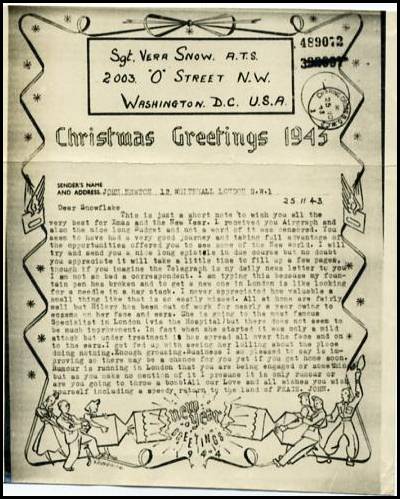 489072
Sgt. VERA SNOW. A.T.S.
2003. "O" STREET N.W.
WASHINGTON. D.C. U.S.A.
Christmas Greetings 1943
SENDER'S NAME
AND ADDRESS JOHN. 12. WHITEHALL LONDON S.W.1
25.11.43.
Dear Snowflake
This is just a short note to wish you all the
very best for Xmas and the New Year. I received you Airgraph and
also the nice long Budget and not a word of it was censored. You
seem to have had a very good journey and taking full advantage of
the opportunities offered you to see some of the New World. I will
try and send you a nice long epistle in due course but no doubt
you appreciate it will take a little time to fill up a few pages,
though if you imagine the Telegraph is my daily news letter to you
I am not so bad a correspondent. I am typing this because my foun-
tain pen has broken and to get a new one in London is like looking
for a needle in a hay stack. I never appreciated how valuable a
small thing like that is so easily missed. All at home are fairly
well but Hilary has been out of work for nearly a year owing to
eczema on her face and ears. She is going to the most famous
Specialist in London (via the Hospital) but there does not seem to
be much improvement. In fact when she started it was only a mild
attack but under treatment it has spread all over the face and on
to the ears. I get fed up at seeing her lolling about the place
doing nothing. Enough grousing. Business I am pleased to say is im-
proving so there may be a chance for you yet if you get home soon.
Rumour is running in London that you are being engaged or something
but as you make no mention of it I presume it is only rumour or
are you going to throw a bomb? All our Love and all wishes you wish
yourself including a speedy return to the land of PEATS. JOHN.
new
year
GREETINGS
1944